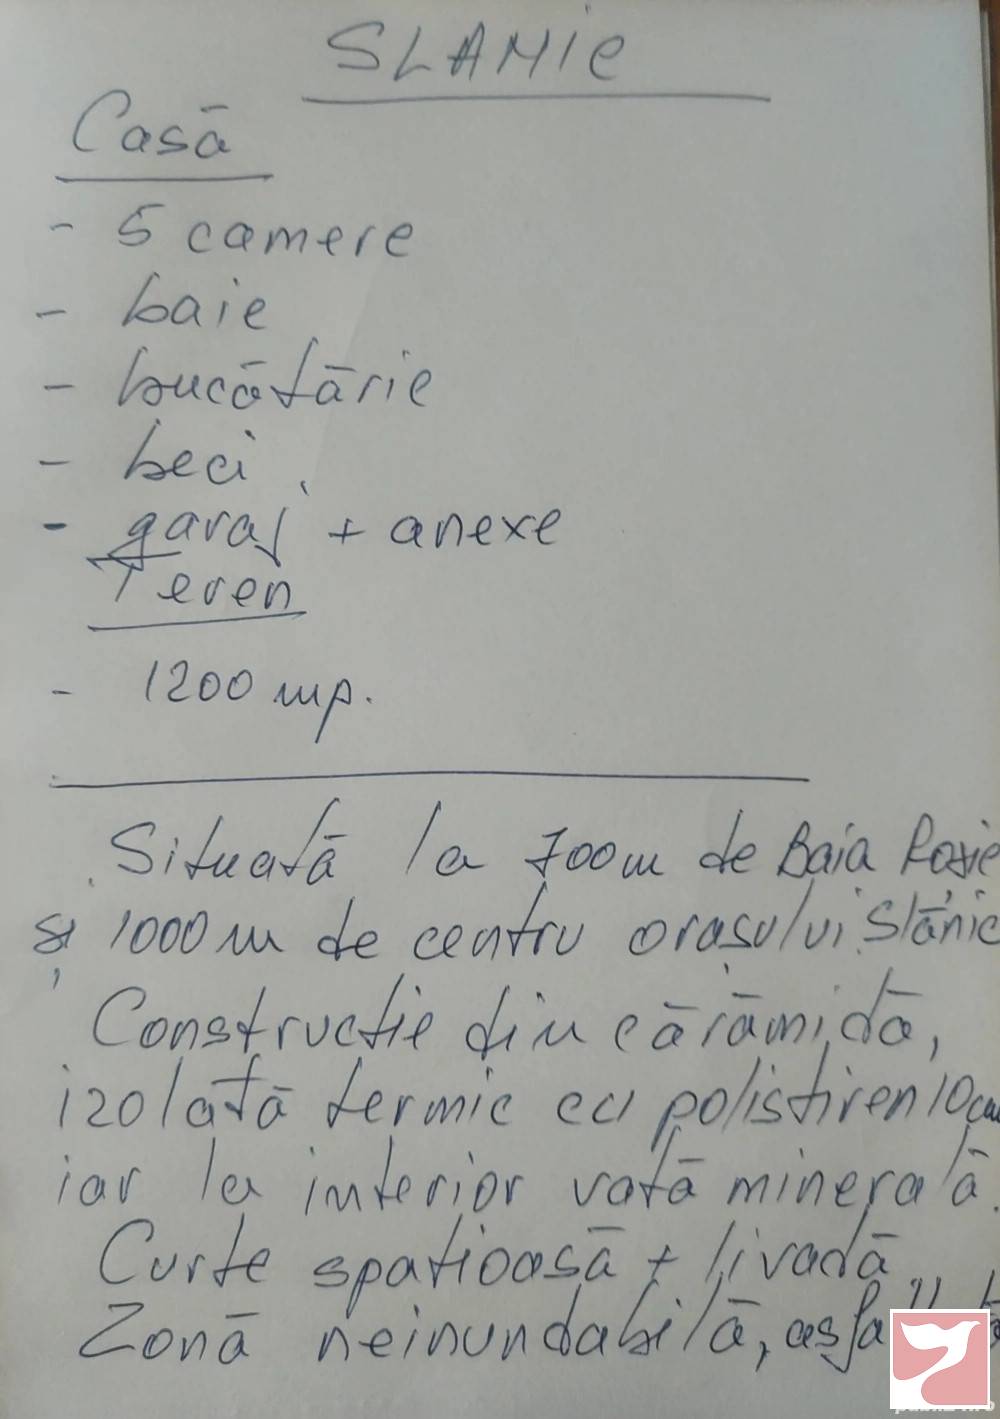 SLANIC
Casă
- 5 camere
- baie
- bucătărie
- beci
- garaj + anexe
Teren
- 1200 mp.
Situată la 700m de Baia Roșie
și 1000 m de centru orașului Slănic
Construcție din cărămidă,
izolată termic cu polistiren 10cm
iar la interior vată minerală.
Curte spatioasă + livadă
Zonă neinundabilă,